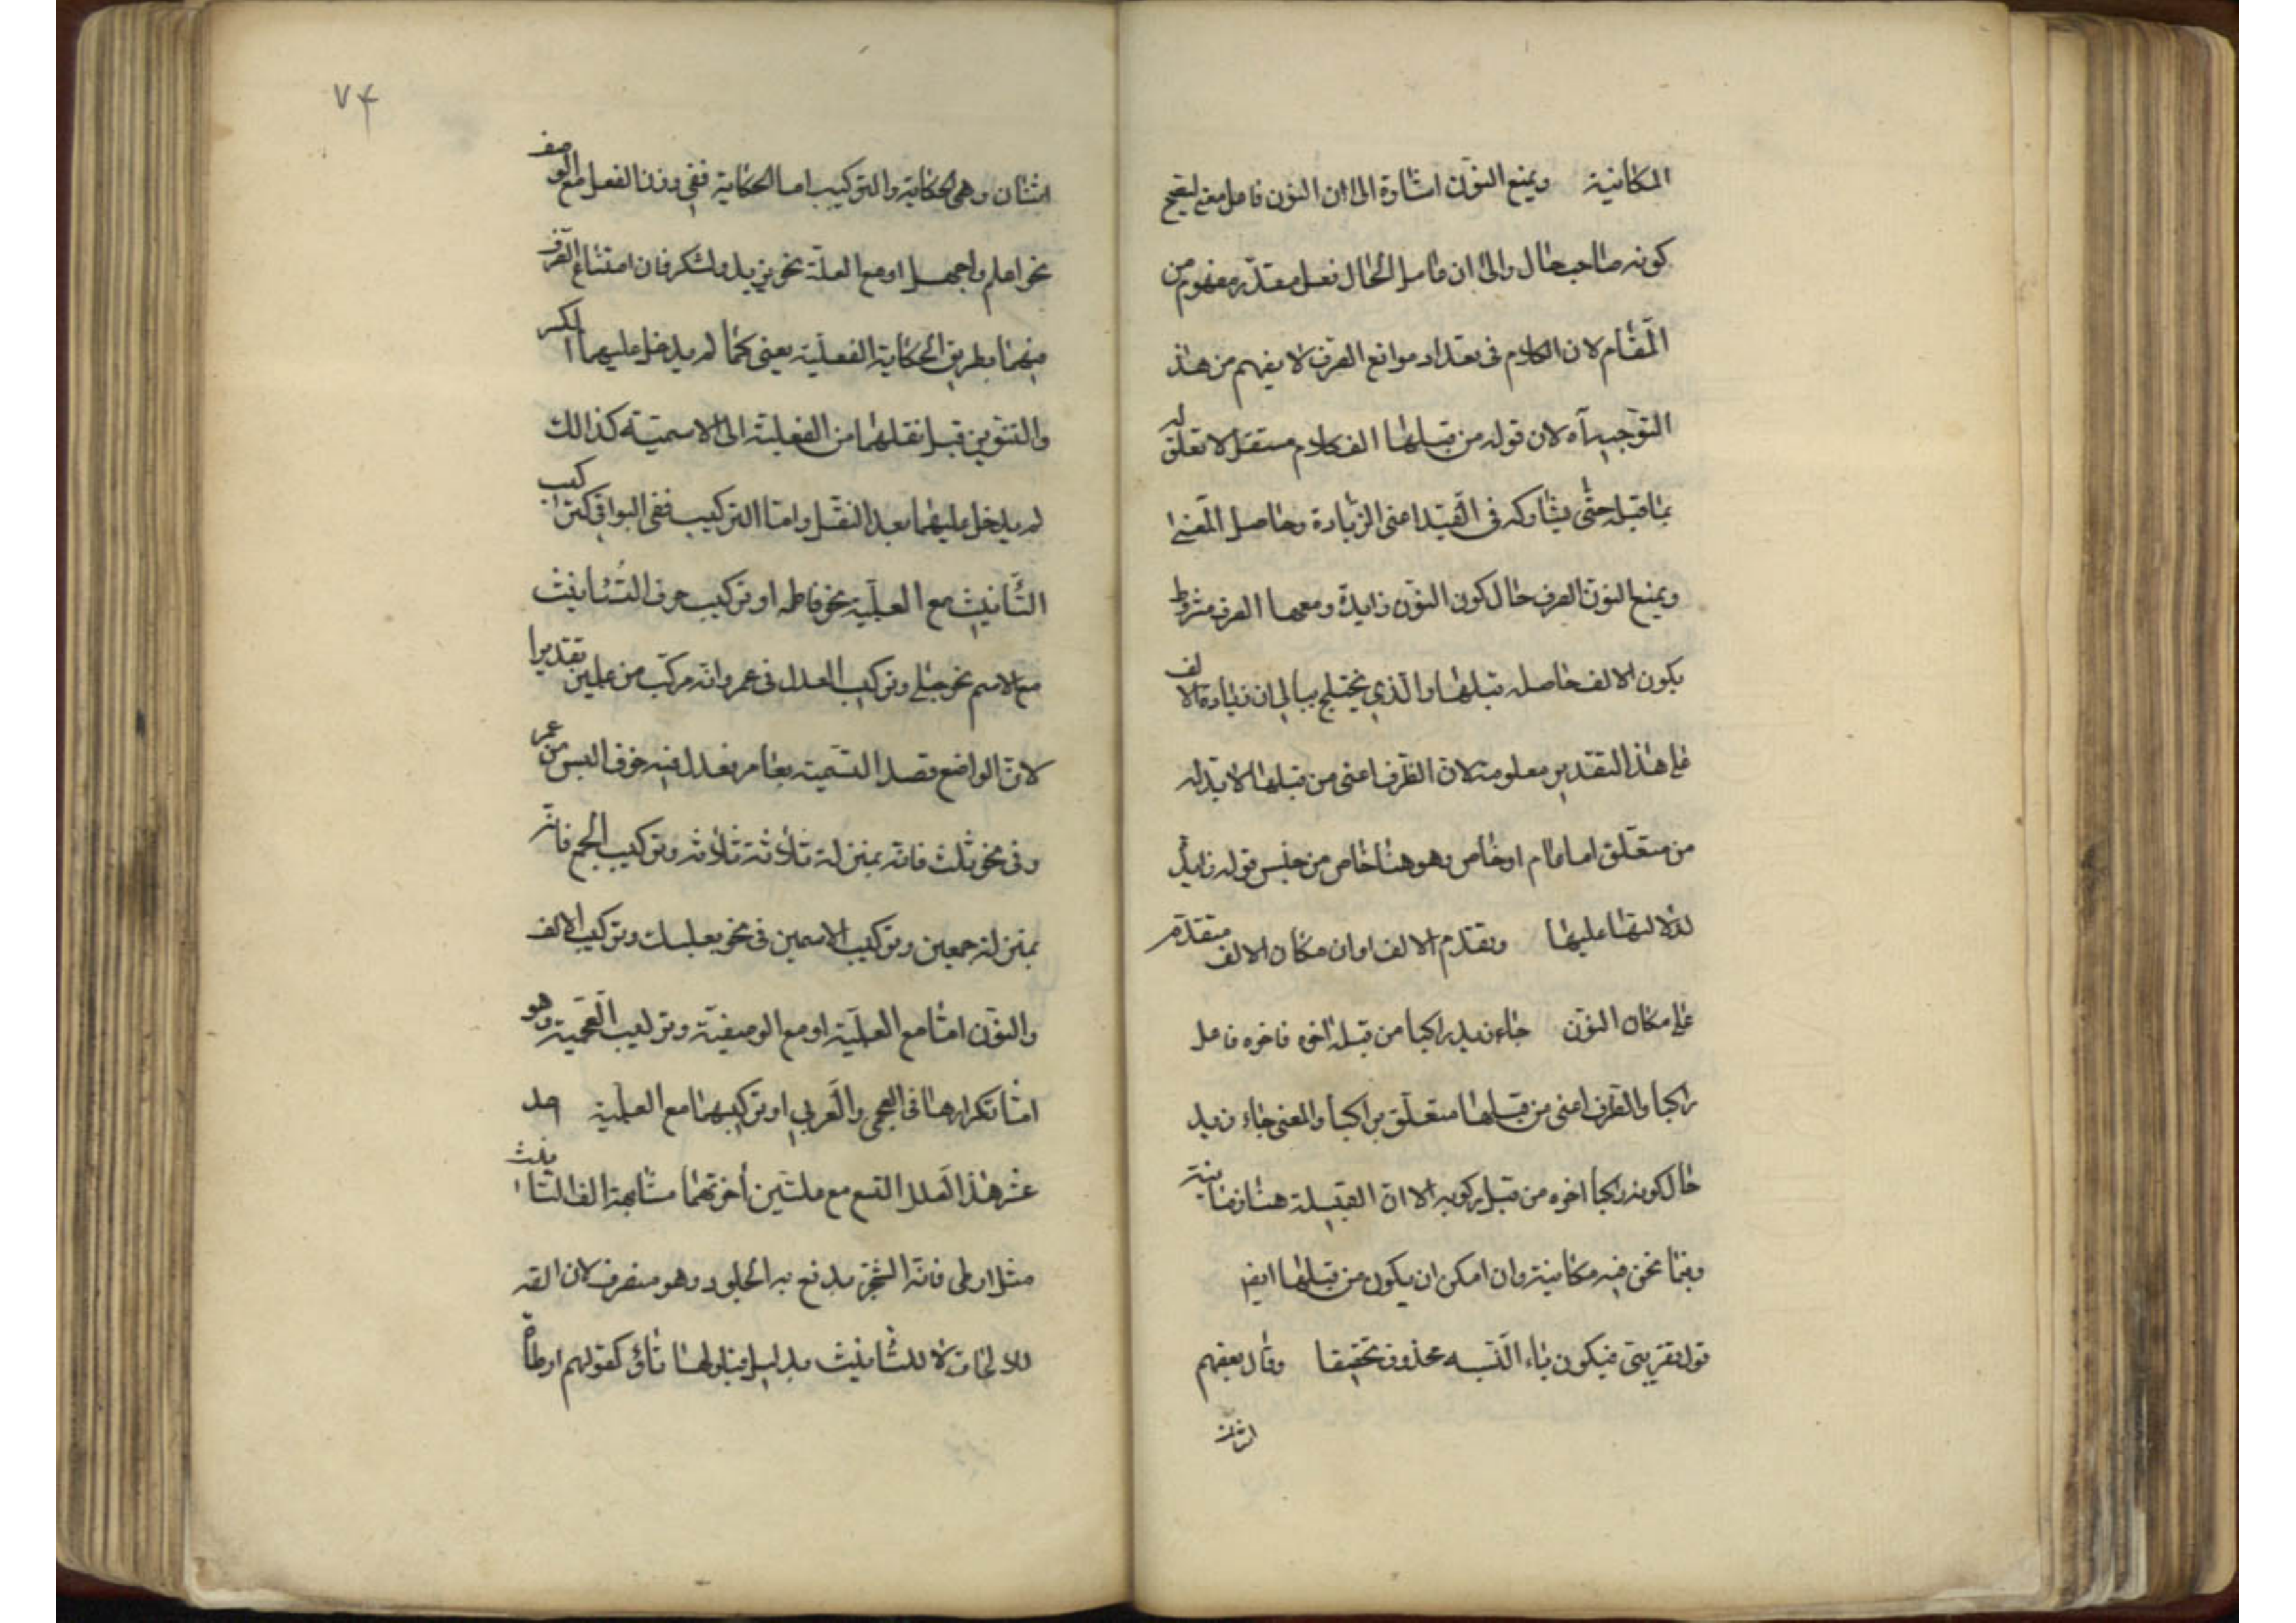 المكانية ويمنع النون اشارة الى ان النون فاعل معنى ليصح
كونه صاحب حال والى ان عامل الحال فعل مقدر مفهوم من
المقام لان الكلام فى تعداد موانع الصرف لا يفهم من هذا
التوجيه آه لان قوله من قبلها الف كلام مستقل لا تعلق له
بما قبله حتى يشاركه فى القيد اعنى الزيادة وحاصل المعنى
ويمنع النون الصرف حال كون النون زايدة ومعها الصرف مشروط
بكون الالف حاصله قبلها والذي يختلج ببالى ان زيادة الالف
على هذا التقدير معلومة لان الظرف اعنى من قبلها لا بد له
من متعلق اما عام او خاص وهو هنا خاص من جنس قوله زايدة
لدلالتها عليها وتقدم الالف او ان مكان الالف متقدم
على مكان النون جاء زيد راكبا من قبله اخوه فاخوه فاعل
راكبا والظرف اعنى من قبلها متعلق براكبا والمعنى جاء زيد
حال كونه راكبا اخوه من قبل ركوبه الا ان القبيلة هنا زمانية
وفيما نحن فيه مكانية وان امكن ان يكون من قبلها ايض
قول تقريبى فيكون ياء النسبه محذوف تحقيقا وقال بعضهم
اثنان
٧۴
اثنان وهى الحكاية والتركيب اما الحكاية ففى وزن الفعل مع الوصف
نحو اعلم واجهل او مع العلة نحو يزيد ولشكر فان امتناع الصرف
منهما بطريق الحكاية الفعلية يعنى كما لم يدخل عليهما الكسر
والتنوين قبل نقلهما من الفعلية الى الاسمية كذالك
لم يدخل عليهما بعد النقل واما التركيب ففى البواقى كتركيب
التانيث مع العلمية نحو فاطمه او تركيب حرف التانيث
مع الاسم نحو حبلى وتركيب العدل فى عمر وانه مركب من علمين تقديرا
لان الواضع قصد التسمية بعامر فعدل فيه خوف البس من عمر
وفى نحو ثلث فانه بمنزلة ثلاثة ثلاثه وتركيب الجمع فانه
بمنزلة جمعين وتركيب الاسمين فى نحو بعلبك وتركيب الالف
والنون اما مع العلمية او مع الوصفية وتركيب العجمية وهو
اما تكرارها فى العجمى والعربى او تركيبهما مع العلمية احد
عشر هذا العلل التسع مع علتين اخرتهما مشابهة الف التانيث
مثل ارطى فانه الشجر يدفع به الجلود وهو منصرف لان الفه
للالحاق لا للتانيث بدليل قبولها تاؤ كقولهم ارطاة